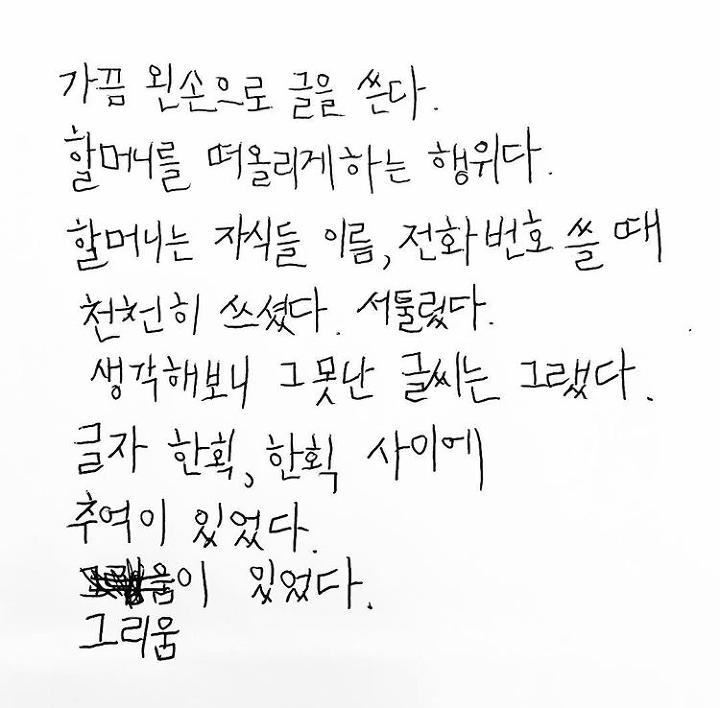 가끔 왼손으로 글을 쓴다.
할머니를 떠올리게하는 행위다.
할머니는 자식들 이름, 전화번호 쓸 때
천천히 쓰셨다. 서툴렀다.
생각해보니 그 못난 글씨는 그랬다.
글자 한획, 한획 사이에
추억이 있었다.
움이 있었다.
그리움